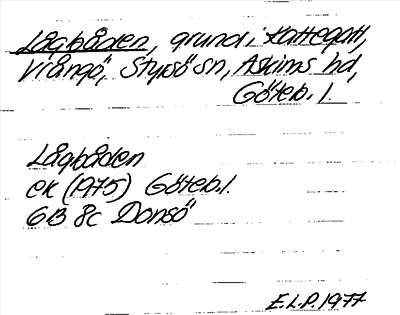 Lågbåden, grund i Kattegatt,
Vrångö, Styrsö sn, Askims hd,
Göteb. l.
Lågbåden
ek (1975) Göteb. l.
6B 8c Donsö
E.L.P. 1977